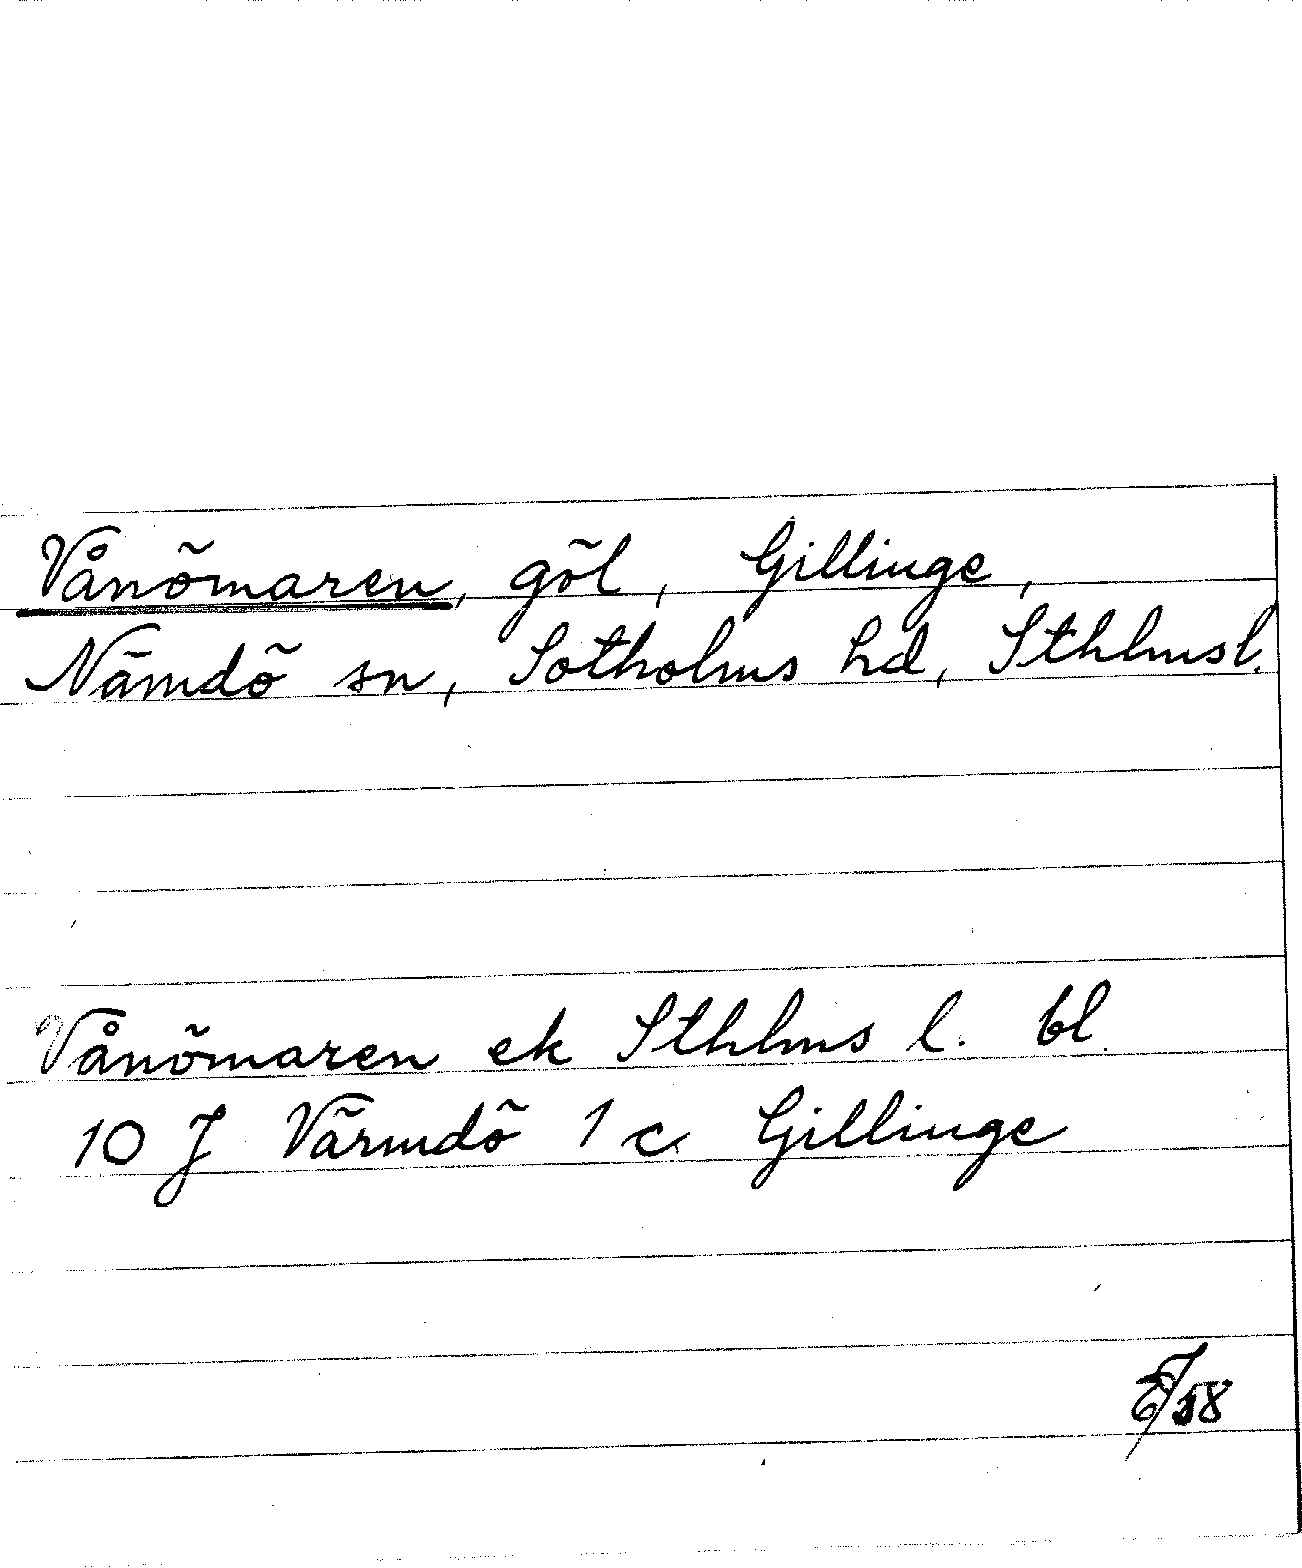 Vånömaren, göl, Gillinge,
Nämdö sn, Sotholms hd, Sthlmsl.
Vånömaren ek Sthlms l. bl.
10 J Värmdö 1 c Gillinge
58